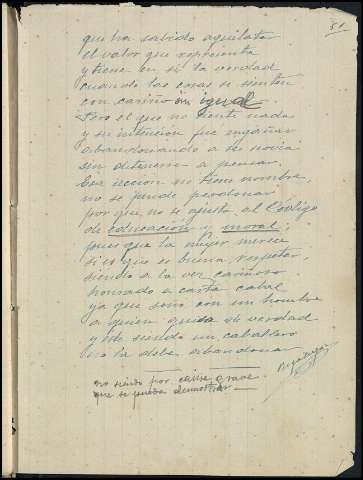 51
que ha sabido aquilatar
el valor que representa
y tiene en si la verdad
cuando las cosas se sienten
con cariño sin igual.
Pero el que no siente nada
y su intención fue engañar
abandonando a su novia
sin detenerse a pensar.
Esa accion no tiene nombre
no se puede perdonar
por que, no se ajusta al Código
de educación y moral;
pues que la mujer merece
si es que es buena, respetar,
siendo a la vez cariñoso
honrado a carta cabal
ya que soñó con un hombre
a quien quiso de verdad
y este siendo un caballero
no la debe abandonar
no siendo por causa grave
que se pueda demostrar